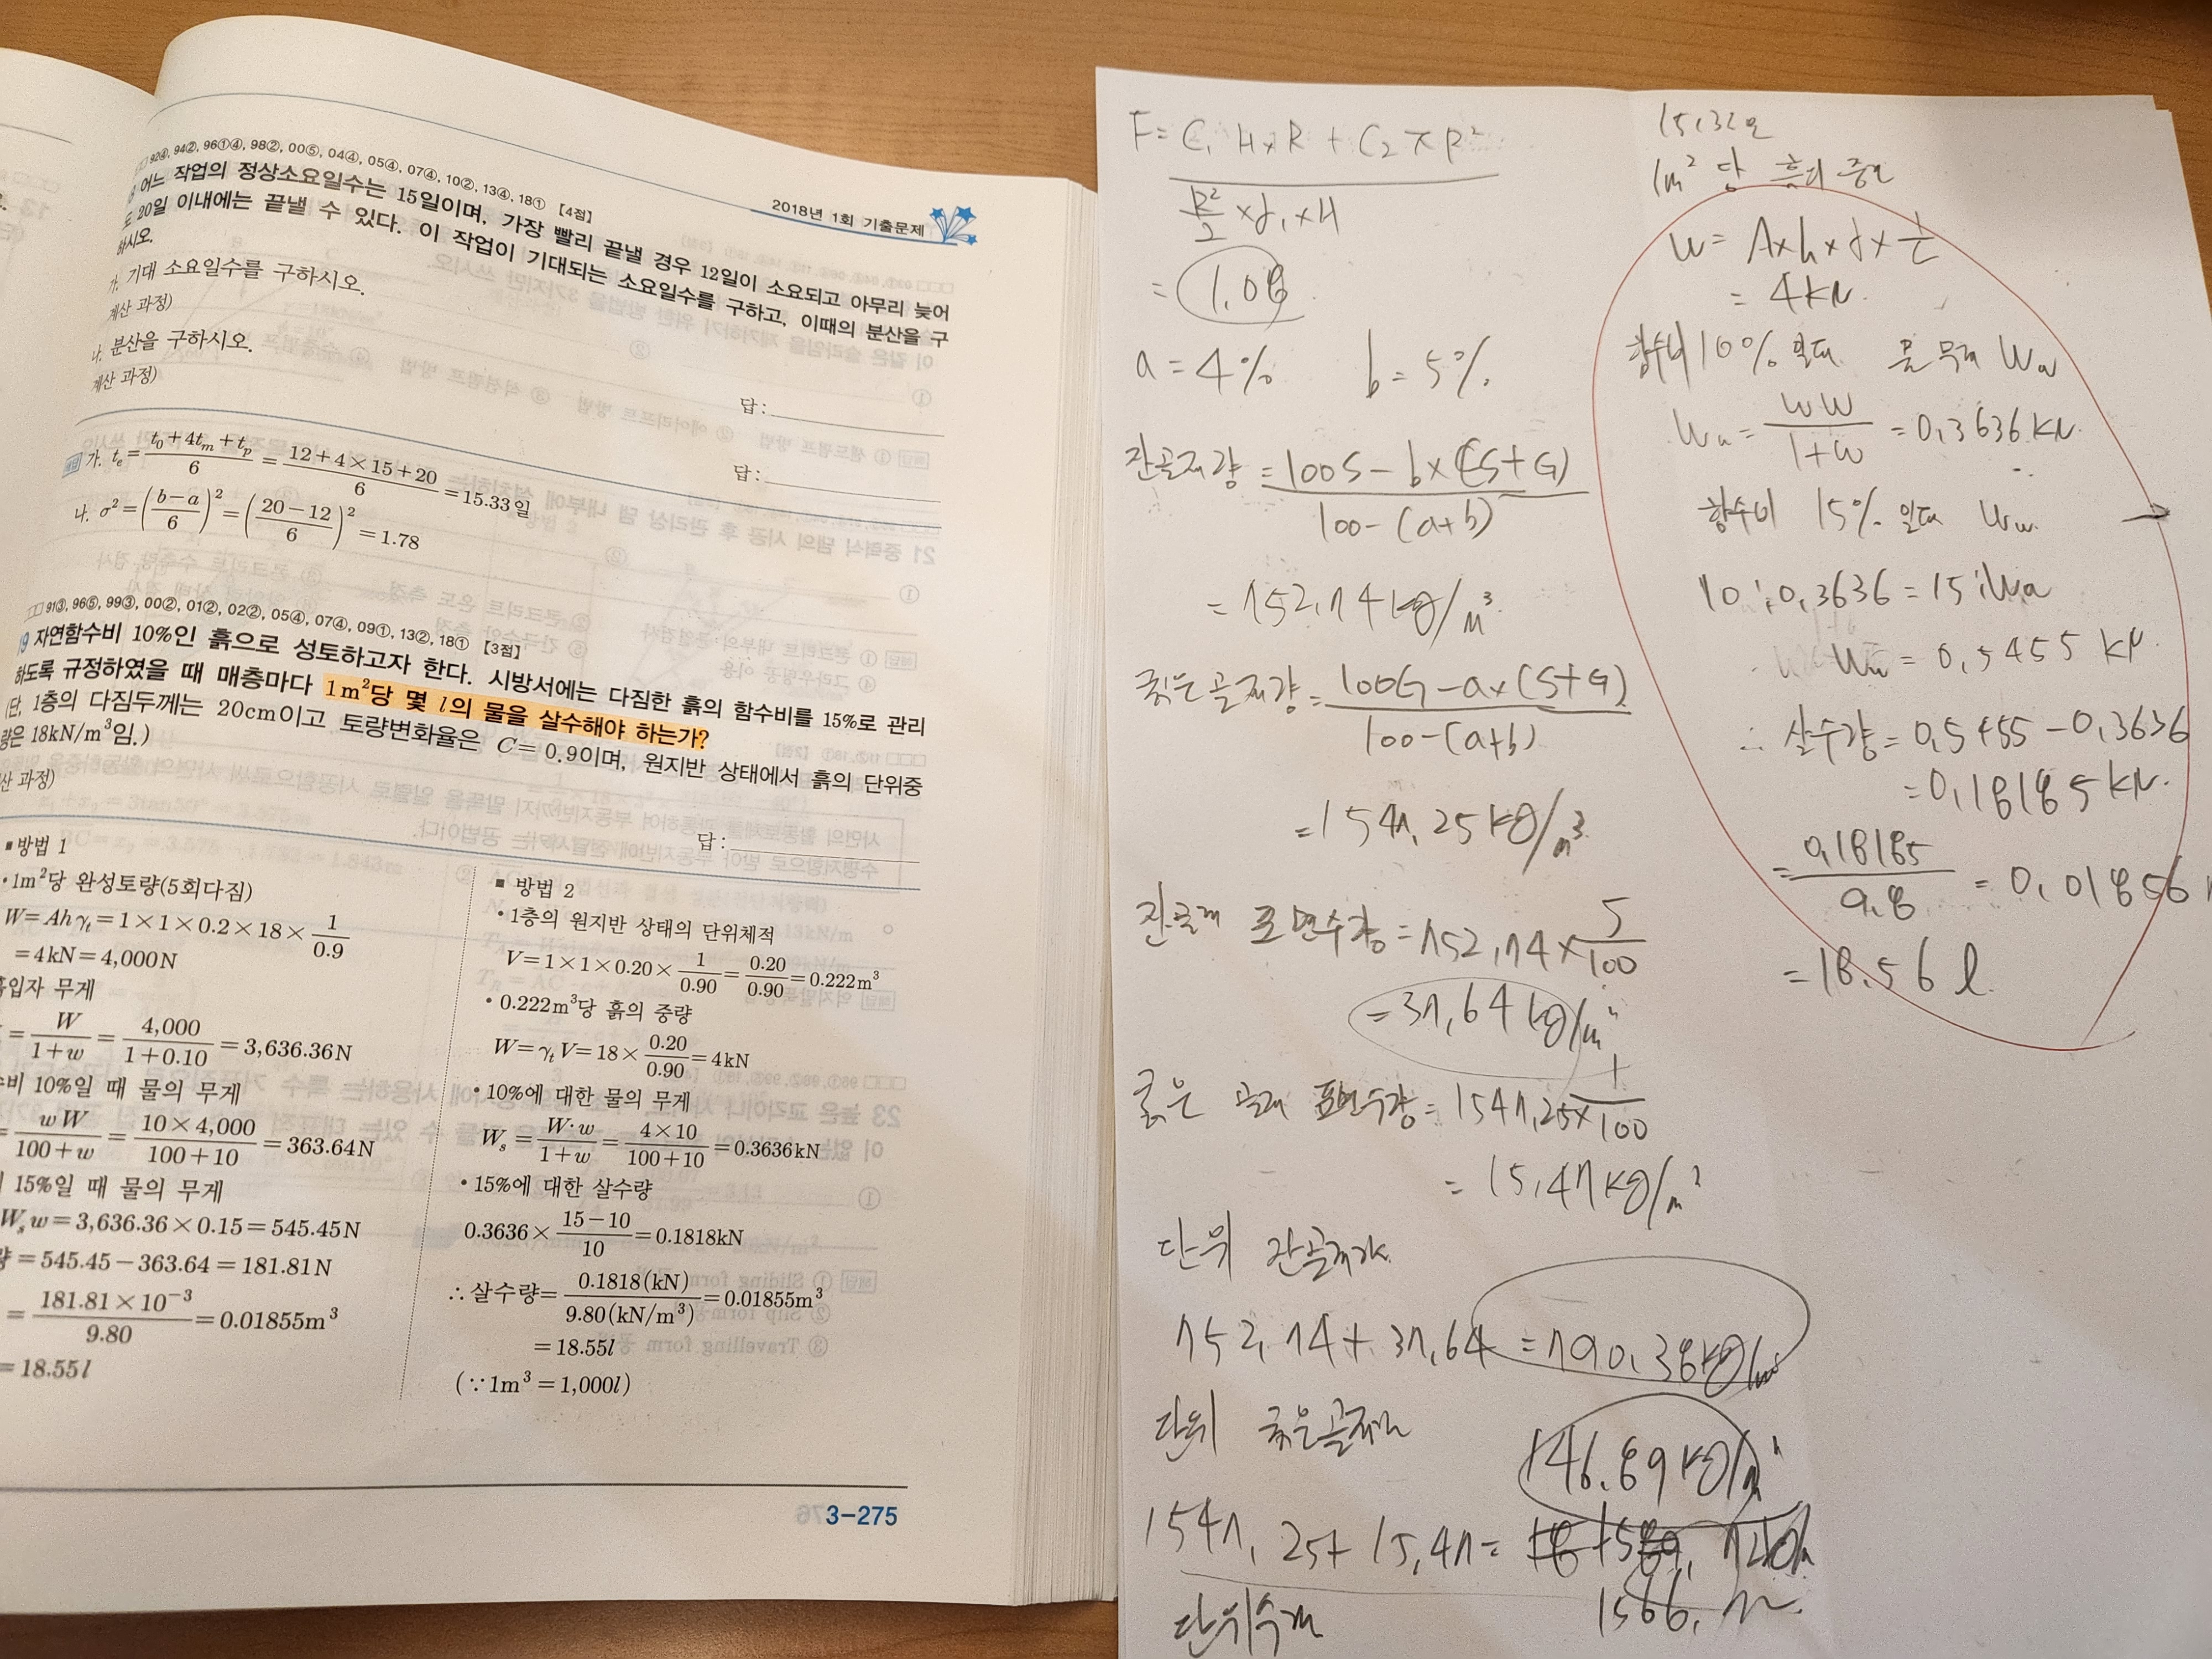 2018년 1회 기출문제
92④, 94②, 96①④, 98②, 00⑤, 04④, 05④, 07④, 10②, 13④, 18① 【4점】
어느 작업의 정상소요일수는 15일이며, 가장 빨리 끝낼 경우 12일이 소요되고 아무리 늦어
도 20일 이내에는 끝낼 수 있다. 이 작업이 기대되는 소요일수를 구하고, 이때의 분산을 구
하시오.
가. 기대 소요일수를 구하시오.
계산 과정)
답:
나. 분산을 구하시오.
계산 과정)
답:
해답 가. t_e = (t_0+4t_m+t_p)/6 = (12+4×15+20)/6 = 15.33일
나. σ² = ((b−a)/6)² = ((20−12)/6)² = 1.78
91③, 96⑤, 99③, 00②, 01②, 02②, 05④, 07④, 09①, 13②, 18① 【3점】
9 자연함수비 10%인 흙으로 성토하고자 한다. 시방서에는 다짐한 흙의 함수비를 15%로 관리
하도록 규정하였을 때 매층마다 1m²당 몇 l의 물을 살수해야 하는가?
(단, 1층의 다짐두께는 20cm이고 토량변화율은 C=0.9이며, 원지반 상태에서 흙의 단위중
량은 18kN/m³임.)
산 과정)
답:
■ 방법 1
• 1m²당 완성토량(5회다짐)
W=Ahγ_t=1×1×0.2×18×1/0.9
=4kN=4,000N
흙입자 무게
= W/(1+w) = 4,000/(1+0.10) = 3,636.36N
수비 10%일 때 물의 무게
= wW/(100+w) = (10×4,000)/(100+10) = 363.64N
15%일 때 물의 무게
W_s w=3,636.36×0.15=545.45N
량=545.45−363.64=181.81N
= (181.81×10⁻³)/9.80 = 0.01855m³
=18.55l
■ 방법 2
• 1층의 원지반 상태의 단위체적
V=1×1×0.20×1/0.90=0.20/0.90=0.222m³
• 0.222m³당 흙의 중량
W=γ_t V=18×0.20/0.90=4kN
• 10%에 대한 물의 무게
W_s = W·w/(1+w) = (4×10)/(100+10) = 0.3636kN
• 15%에 대한 살수량
0.3636×(15−10)/10=0.1818kN
∴ 살수량=0.1818(kN)/9.80(kN/m³)=0.01855m³
=18.55l
(∵1m³=1,000l)
3-275
F= C₁ H×R + C₂ π R²
R²/2 ×γ₁×H
= 1.08
a=4% b=5%
잔골재량 = (100S − b×(S+G))/(100−(a+b))
= 752.74 kg/m³
굵은골재량 = (100G − a×(S+G))/(100−(a+b))
= 1547.25 kg/m³
잔골재 표면수량 = 752.74×5/100
= 37.64 kg/m³
굵은 골재 표면수량 = 1547.25×1/100
= 15.47 kg/m³
단위 잔골재량
752.74 + 37.64 = 790.38 kg/m³
단위 굵은골재량
146.89 kg/m³
1547.25+ 15.47 =
단위수량
15.32일
1m² 당 흙의 중량
W= A×h×γ×1/C
= 4kN.
함수비 10% 일때 물 무게 Ww
Ww = wW/(1+w) = 0.3636 kN.
함수비 15% 일때 Ww.
10 : 0.3636 = 15 : Ww
Ww = 0.5455 kN.
∴ 살수량 = 0.5455 − 0.3636
= 0.18185 kN.
= 0.18185/9.8 = 0.01856
= 18.56 l.